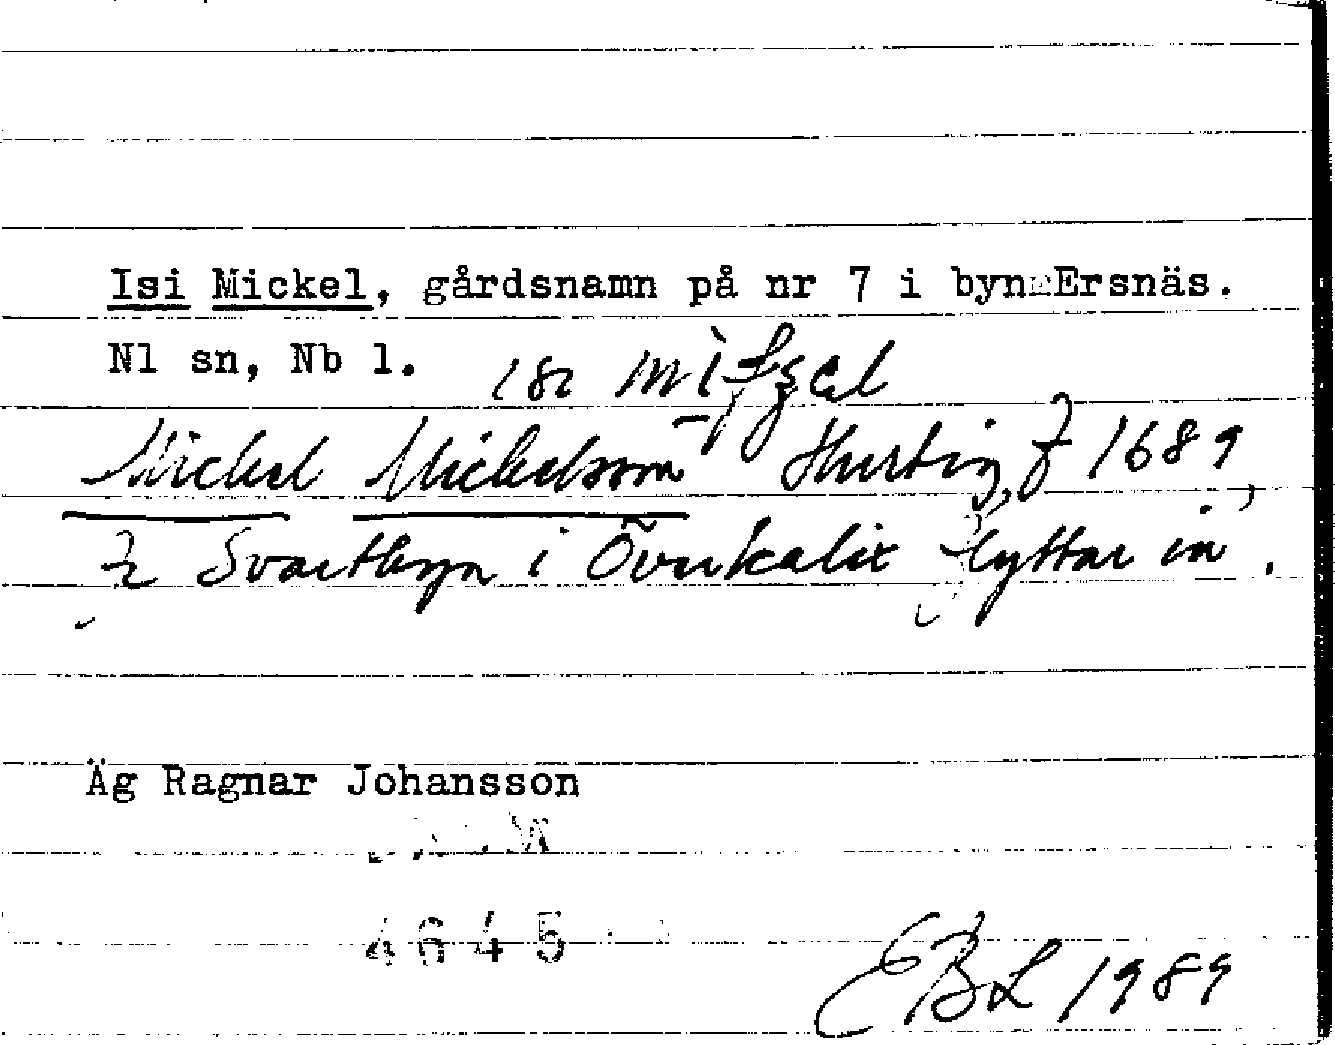 Isi Mickel, gårdsnamn på nr 7 i byn Ersnäs.
Nl sn, Nb l.
Mickel Mickelsson Hurtig, f 1689,
fr Svartbyn i Överkalix flyttar in.
Äg Ragnar Johansson
4645
EBL 1989